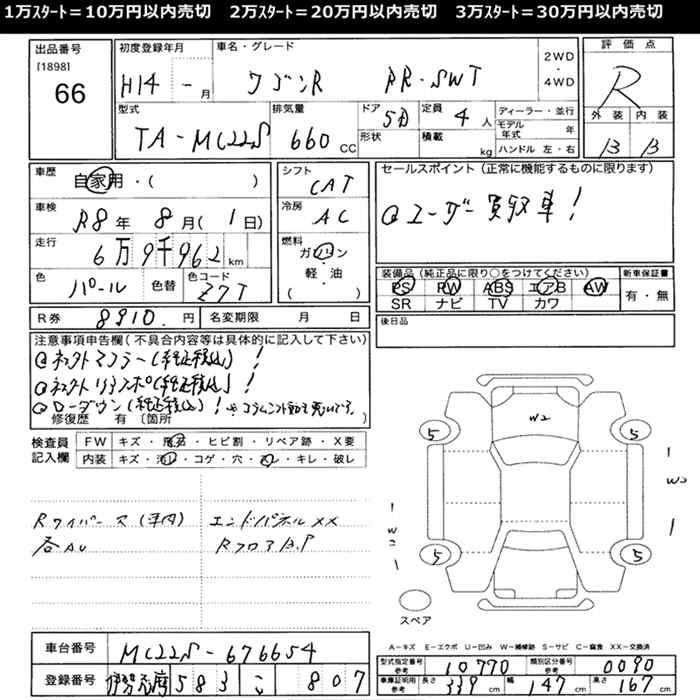 1万ｽﾀｰﾄ＝10万円以内売切　2万ｽﾀｰﾄ＝20万円以内売切　3万ｽﾀｰﾄ＝30万円以内売切
出品番号
[1898]
66
初度登録年月
H14 - 月
車名・グレード
ワゴンR RR-SWT
2WD
・
4WD
評価点
R
外装 内装
B B
型式
TA-MC22S
排気量
660 CC
ドア
5D
形状
定員
4 人
積載
kg
ディーラー・並行
モデル年式 年
ハンドル 左・右
車歴
自家用・( )
車検
R8 年 8 月 ( 1 日)
走行
6万9千962 km
色
パール
色替
色コード
Z7T
シフト
CAT
冷房
AC
燃料
ガソリン
・
軽・油
( )
セールスポイント (正常に機能するものに限ります)
ユーザー買取車!
装備品 (純正品に限り○をつけてください)
PS PW ABS エアB AW
SR ナビ TV カワ
新車保証書
有・無
R券
8910. 円
名変期限 月 日
後日品
注意事項申告欄(不具合内容等は具体的に記入して下さい)
ローダウン(純正戻込)!
修復歴 有 〔箇所 〕
検査員
記入欄
FW キズ・飛石・ヒビ割・リペア跡・X要
内装 キズ・汚レ・コゲ・穴・スレ・キレ・破レ
Rワイパー
エンドパネルXX
各AU
RフロアB.P
W2
5
5
5
5
W2
W2
スペア
A－キズ E－エクボ U－凹み W－補修跡 S－サビ C－腐食 XX－交換済
車台番号
MC22S-676654
登録番号
583 こ 807
型式指定番号
参考
10770
類別区分番号
参考
0090
車庫証明用
参考
長さ 339 cm 幅 147 cm 高さ 167 cm